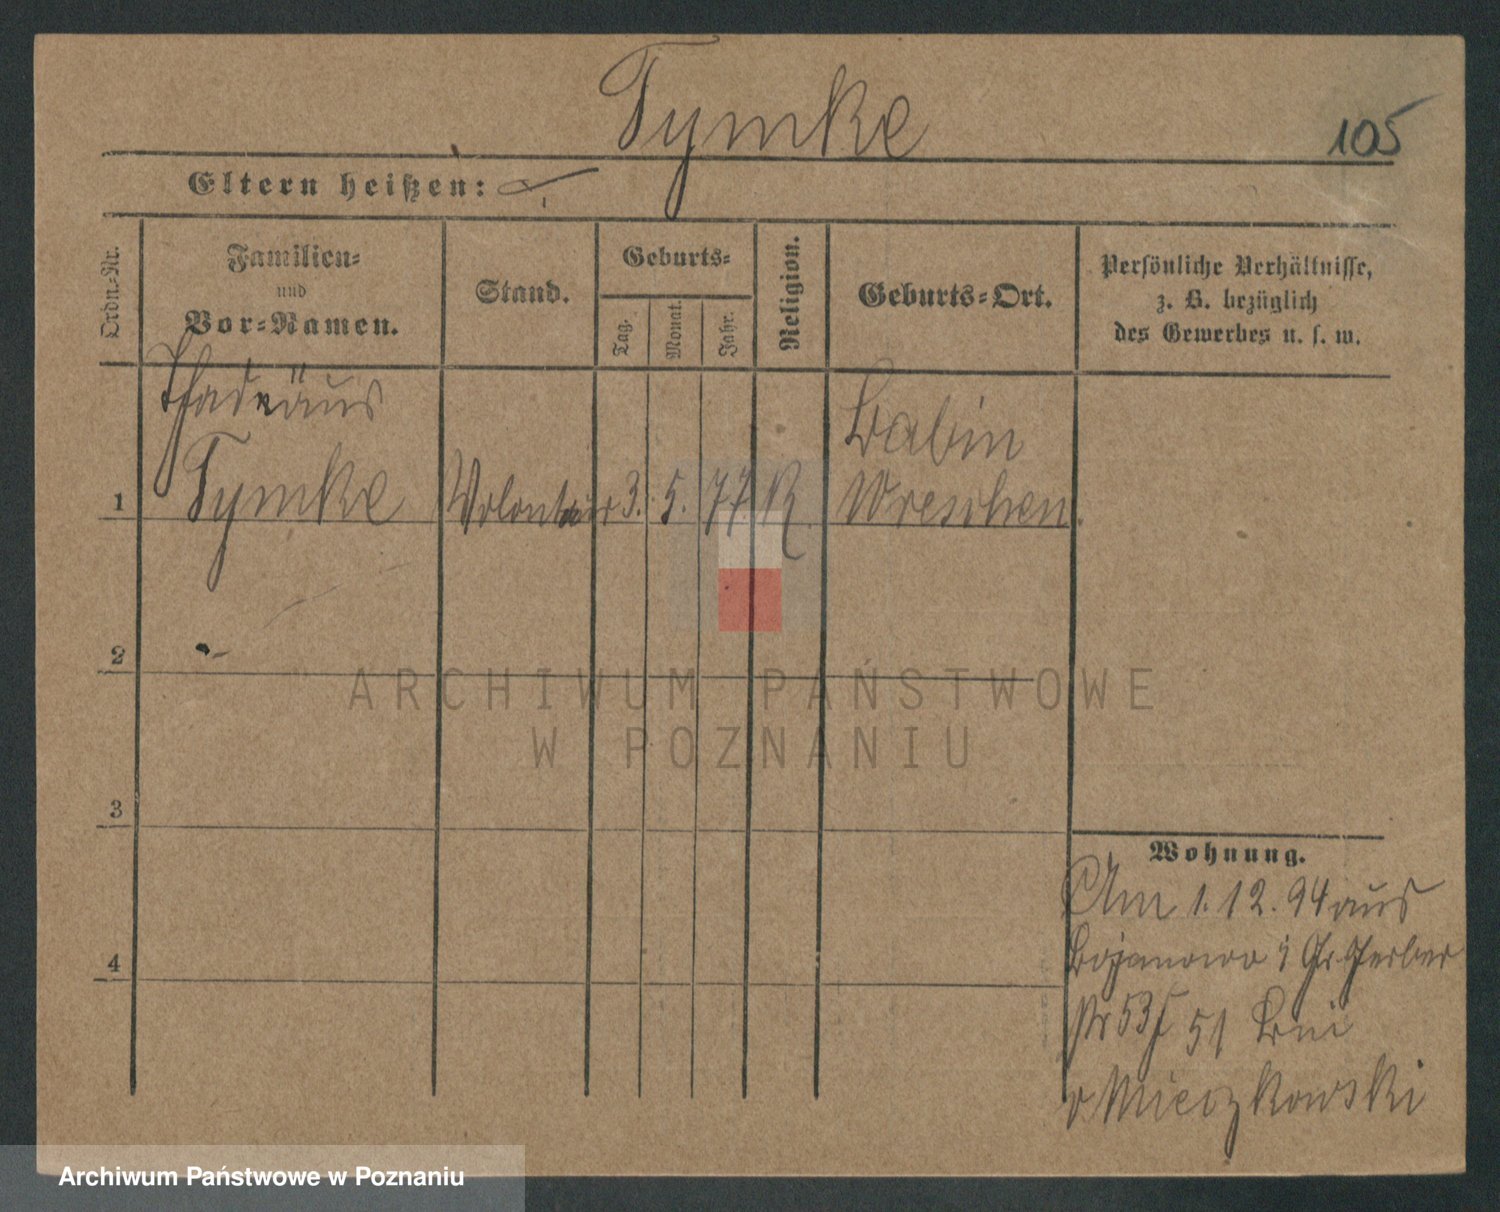 Tymke
105
Eltern heißen:
Ordn.-Nr.
Familien-
und
Vor-Namen.
Stand.
Geburts-
Tag.
Monat.
Jahr.
Religion.
Geburts-Ort.
Persönliche Verhältnisse,
z. B. bezüglich
des Gewerbes u. s. w.
Thadäus
Babin
1 Tymke Volontär 3. 5. 77. K. Wreschen.
2
ARCHIWUM PAŃSTWOWE
W POZNANIU
3
Wohnung.
Am 1.12.94 aus
4
Bojanowo Gr. Gerber
str 53 51 bei
v Mieczkowski
Archiwum Państwowe w Poznaniu